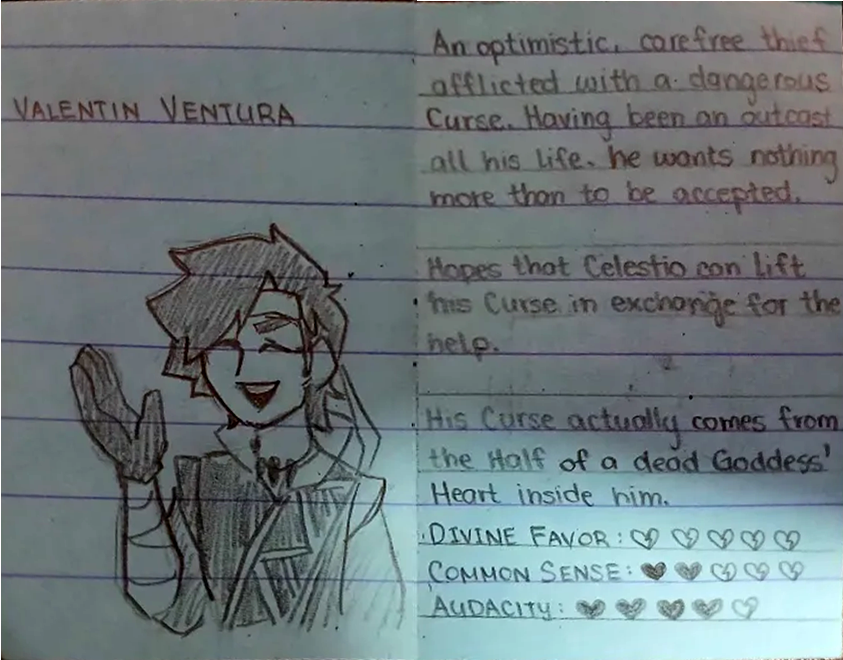 VALENTIN VENTURA
An optimistic, carefree thief
afflicted with a dangerous
Curse. Having been an outcast
all his life, he wants nothing
more than to be accepted.
Hopes that Celestio can lift
his Curse in exchange for the
help.
His Curse actually comes from
the Half of a dead Goddess'
Heart inside him.
DIVINE FAVOR:
COMMON SENSE:
AUDACITY: